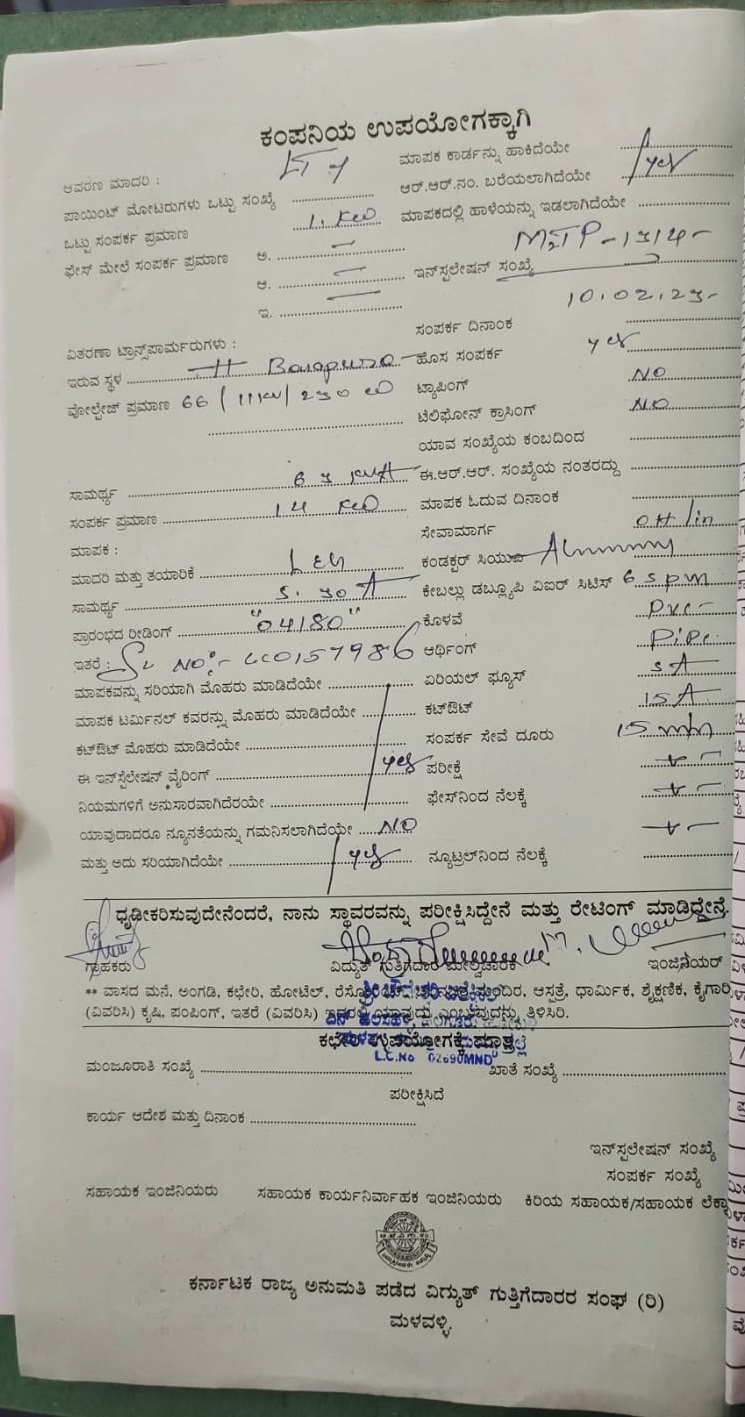 ಕಂಪನಿಯ ಉಪಯೋಗಕ್ಕಾಗಿ
ಆವರಣ ಮಾದರಿ : LT-1
ಪಾಯಿಂಟ್ ಮೋಟರುಗಳು ಒಟ್ಟು ಸಂಖ್ಯೆ
ಒಟ್ಟು ಸಂಪರ್ಕ ಪ್ರಮಾಣ 1. KW
ಫೇಸ್ ಮೇಲೆ ಸಂಪರ್ಕ ಪ್ರಮಾಣ ಅ. —
ಆ. —
ಇ. —
ವಿತರಣಾ ಟ್ರಾನ್ಸ್‌ಪಾರ್ಮರುಗಳು :
ಇರುವ ಸ್ಥಳ H
ವೋಲ್ಟೇಜ್ ಪ್ರಮಾಣ 66 / 11KV/ 230
ಸಾಮರ್ಥ್ಯ 63 KVA
ಸಂಪರ್ಕ ಪ್ರಮಾಣ 14 KW
ಮಾಪಕ :
ಮಾದರಿ ಮತ್ತು ತಯಾರಿಕೆ
ಸಾಮರ್ಥ್ಯ 5. 30 A
ಪ್ರಾರಂಭದ ರೀಡಿಂಗ್ "04180"
ಇತರೆ : SL NO:-
ಮಾಪಕವನ್ನು ಸರಿಯಾಗಿ ಮೊಹರು ಮಾಡಿದೆಯೇ
ಮಾಪಕ ಟರ್ಮಿನಲ್ ಕವರನ್ನು ಮೊಹರು ಮಾಡಿದೆಯೇ
ಕಟ್‌ಔಟ್ ಮೊಹರು ಮಾಡಿದೆಯೇ
ಈ ಇನ್‌ಸ್ಟಲೇಷನ್ ವೈರಿಂಗ್ yes
ನಿಯಮಗಳಿಗೆ ಅನುಸಾರವಾಗಿದೆರಯೇ
ಯಾವುದಾದರೂ ನ್ಯೂನತೆಯನ್ನು ಗಮನಿಸಲಾಗಿದೆಯೇ NO
ಮತ್ತು ಅದು ಸರಿಯಾಗಿದೆಯೇ yes
ಮಾಪಕ ಕಾರ್ಡನ್ನು ಹಾಕಿದೆಯೇ
ಆರ್.ಆರ್.ನಂ. ಬರೆಯಲಾಗಿದೆಯೇ yes
ಮಾಪಕದಲ್ಲಿ ಹಾಳೆಯನ್ನು ಇಡಲಾಗಿದೆಯೇ
ಇನ್‌ಸ್ಟಲೇಷನ್ ಸಂಖ್ಯೆ
ಸಂಪರ್ಕ ದಿನಾಂಕ 10.02.23-
ಹೊಸ ಸಂಪರ್ಕ yes
ಟ್ಯಾಪಿಂಗ್ NO
ಟೆಲಿಫೋನ್ ಕ್ರಾಸಿಂಗ್ NO
ಯಾವ ಸಂಖ್ಯೆಯ ಕಂಬದಿಂದ
ಈ.ಆರ್.ಆರ್. ಸಂಖ್ಯೆಯ ನಂತರದ್ದು
ಮಾಪಕ ಓದುವ ದಿನಾಂಕ
ಸೇವಾಮಾರ್ಗ OH/lin
ಕಂಡಕ್ಟರ್ ಸಿಯುವಿ
ಕೇಬಲ್ಲು ಡಬ್ಲ್ಯೂಪಿ ವಿಐರ್ ಸಿಟಿಸ್
ಕೊಳವೆ PVC-
ಆರ್ಥಿಂಗ್ Pipe
ಏರಿಯಲ್ ಫ್ಯೂಸ್ 5A
ಕಟ್‌ಔಟ್ 15A
ಸಂಪರ್ಕ ಸೇವೆ ದೂರು
ಪರೀಕ್ಷೆ
ಫೇಸ್‌ನಿಂದ ನೆಲಕ್ಕೆ
ನ್ಯೂಟ್ರಲ್‌ನಿಂದ ನೆಲಕ್ಕೆ
ಧೃಡೀಕರಿಸುವುದೇನೆಂದರೆ, ನಾನು ಸ್ಥಾವರವನ್ನು ಪರೀಕ್ಷಿಸಿದ್ದೇನೆ ಮತ್ತು ರೇಟಿಂಗ್ ಮಾಡಿದ್ದೇನೆ.
ಗ್ರಾಹಕರು ವಿದ್ಯುತ್ ಗುತ್ತಿಗೆದಾರ ಮೇಲ್ವಿಚಾರಕ ಇಂಜಿನಿಯರ್
** ವಾಸದ ಮನೆ, ಅಂಗಡಿ, ಕಛೇರಿ, ಹೋಟೆಲ್, ಮಂದಿರ, ಆಸ್ಪತ್ರೆ, ಧಾರ್ಮಿಕ, ಶೈಕ್ಷಣಿಕ, ಕೈಗಾರಿ
(ವಿವರಿಸಿ) ಕೃಷಿ, ಪಂಪಿಂಗ್, ಇತರೆ (ವಿವರಿಸಿ) ಇದರಲ್ಲಿ ಯಾವುದು ಎಂಬುವುದನ್ನು ತಿಳಿಸಿರಿ.
ಕಛೇರಿ ಉಪಯೋಗಕ್ಕೆ ಮಾತ್ರ
L.C.No 02690MND
ಮಂಜೂರಾತಿ ಸಂಖ್ಯೆ ಖಾತೆ ಸಂಖ್ಯೆ
ಪರೀಕ್ಷಿಸಿದೆ
ಕಾರ್ಯ ಆದೇಶ ಮತ್ತು ದಿನಾಂಕ
ಇನ್‌ಸ್ಟಲೇಷನ್ ಸಂಖ್ಯೆ
ಸಂಪರ್ಕ ಸಂಖ್ಯೆ
ಸಹಾಯಕ ಇಂಜಿನಿಯರು ಸಹಾಯಕ ಕಾರ್ಯನಿರ್ವಾಹಕ ಇಂಜಿನಿಯರು ಕಿರಿಯ ಸಹಾಯಕ/ಸಹಾಯಕ ಲೆಕ್ಕಾ
ಕರ್ನಾಟಕ ರಾಜ್ಯ ಅನುಮತಿ ಪಡೆದ ವಿದ್ಯುತ್ ಗುತ್ತಿಗೆದಾರರ ಸಂಘ (ರಿ)
ಮಳವಳ್ಳಿ.